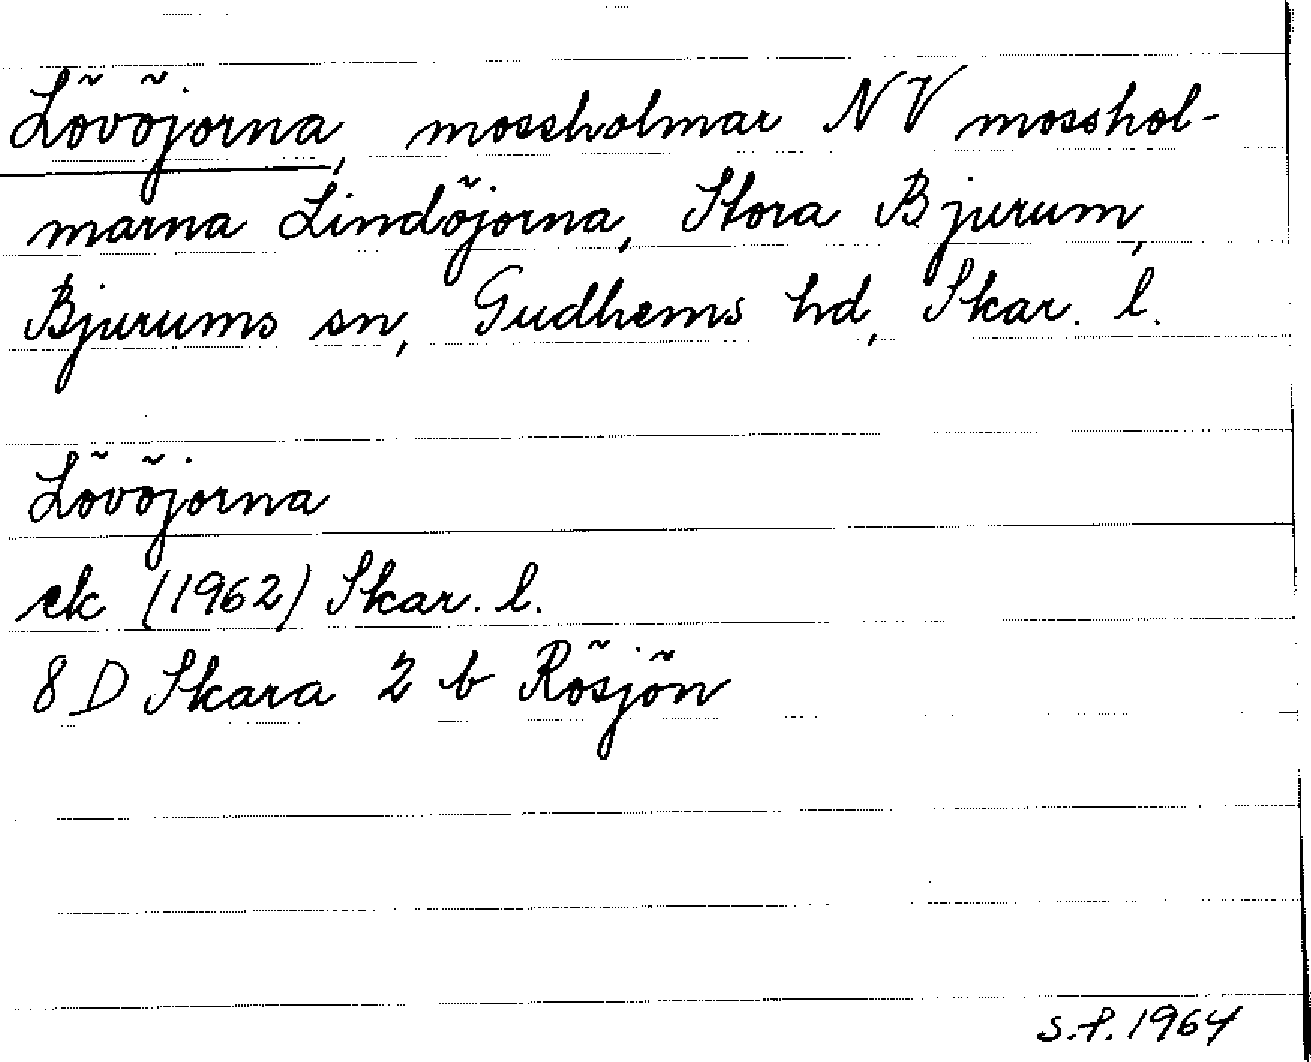 Lövöjorna, mossholmar NV mosshol-
marna Lindöjorna, Stora Bjurum,
Bjurums sn, Gudhems hd, Skar. l.
Lövöjorna
ek (1962) Skar. l.
8 D Skara 2 b Rösjön
s.f. 1964